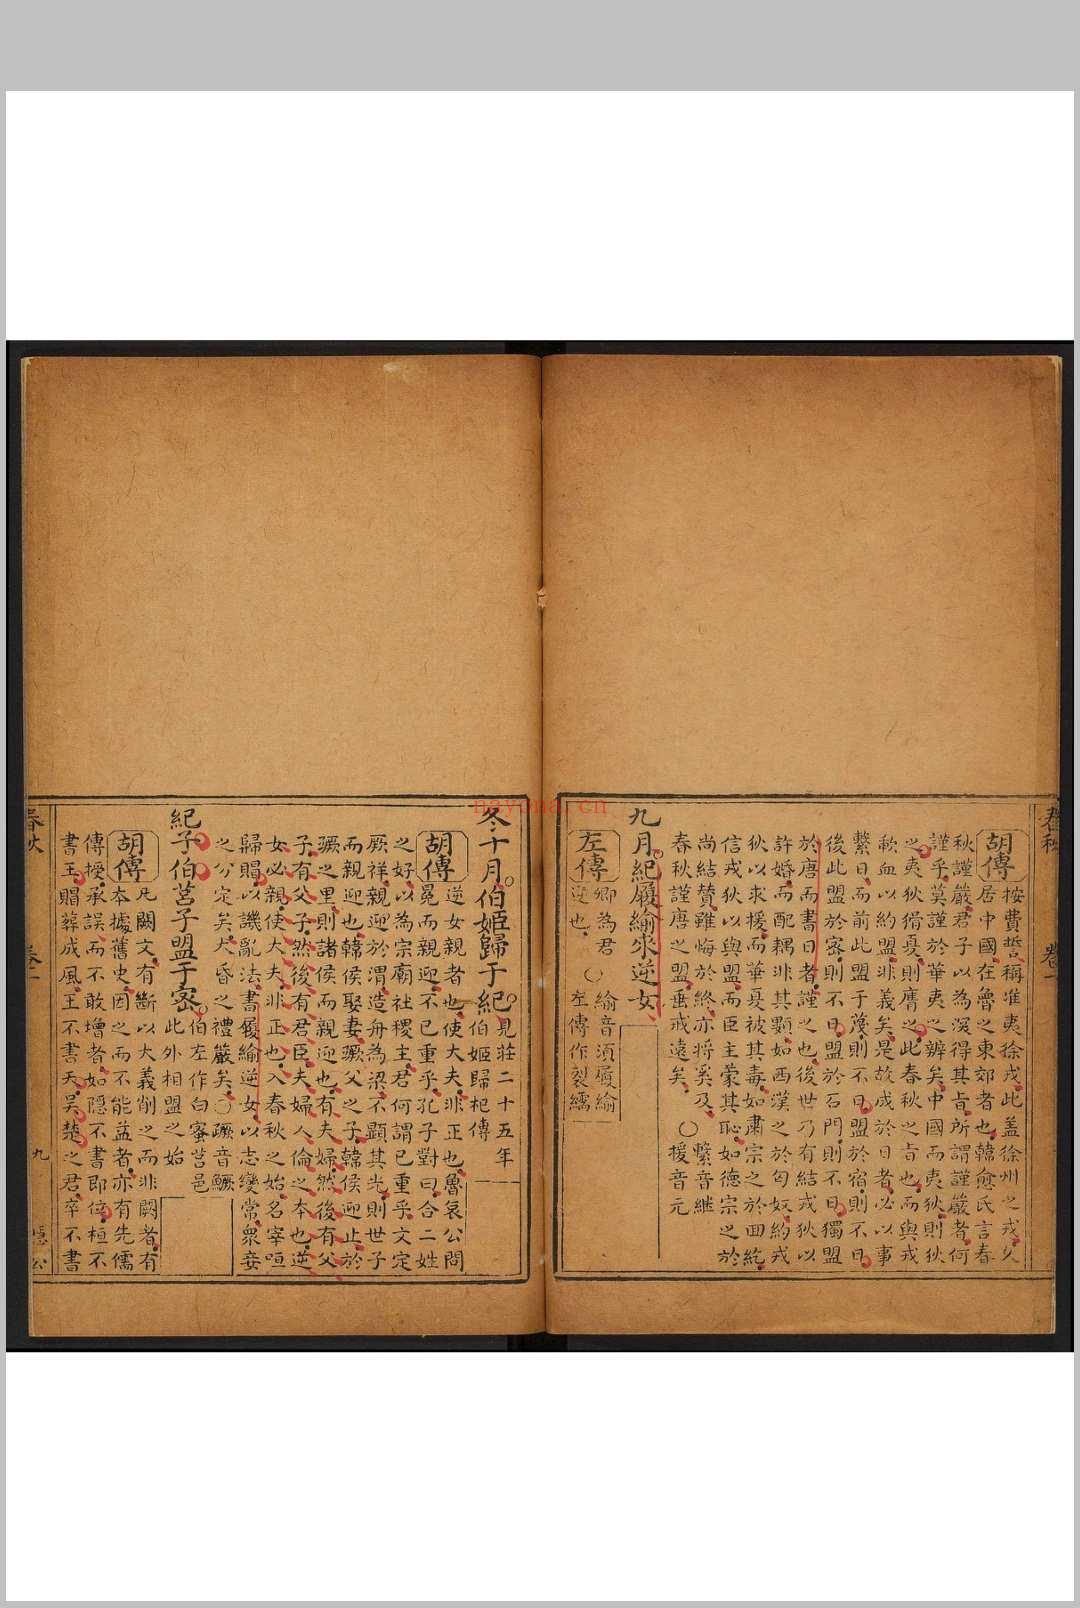 胡傳
按費誓稱淮夷徐戎此盖徐州之戎久
居中國在魯之東郊者也韓愈氏言春
秋謹嚴君子以為深得其旨所謂謹嚴者何
謹乎莫謹於華夷之辨矣中國而夷狄則狄
之夷狄猾夏則膺之此春秋之旨也而與戎
歃血以約盟非義矣是故成於日者必以事
繫日而前此盟于蔑則不日盟於宿則不日
後此盟於密則不日盟於石門則不日獨盟
於唐而書日者謹之也後世乃有結戎狄以
許婚而配耦非其類如西漢之於匈奴約戎
狄以求援而華夏被其毒如肅宗之於回紇
信戎狄以與盟而臣主蒙其恥如德宗之於
尚結贊雖悔於終亦将奚及 繫音継
春秋謹唐之盟垂戒遠矣 ○援音元
九月紀履緰來逆女
左傳
卿為君 ○緰音湏履緰
逆也 左傳作裂繻
冬十月伯姬歸于紀 見莊二十五年
伯姬歸杞傳
胡傳
逆女親者也使大夫非正也魯哀公問
冕而親迎不已重乎孔子對曰合二姓
之好以為宗廟社稷主君何謂已重乎文定
厥祥親迎於渭造舟為梁不顯其光則世子
而親迎也韓侯娶妻蹶父之子韓侯迎止於
蹶之里則諸侯而親迎也有夫婦然後有父
子有父子然後有君臣夫婦人倫之本也逆
女必親使大夫非正也入春秋之始名宰咺
歸賵以譏亂法書履緰逆女以志變常衆妾
之分定矣大昏之禮嚴矣○蹶音鱖
紀子伯莒子盟于密 伯左作帛密莒邑
此外相盟之始
胡傳
凡闕文有斷以大義削之而非闕者有
本據舊史因之而不能益者亦有先儒
傳授承誤而不敢增者如隱不書即位桓不
書王賵葬成風王不書天吳楚之君卒不書
春秋
九
隱公
nayona.cn